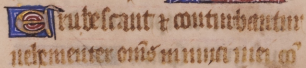 Erubescant ⁊ conturbantur
uehementer om̅s inimici mei: co